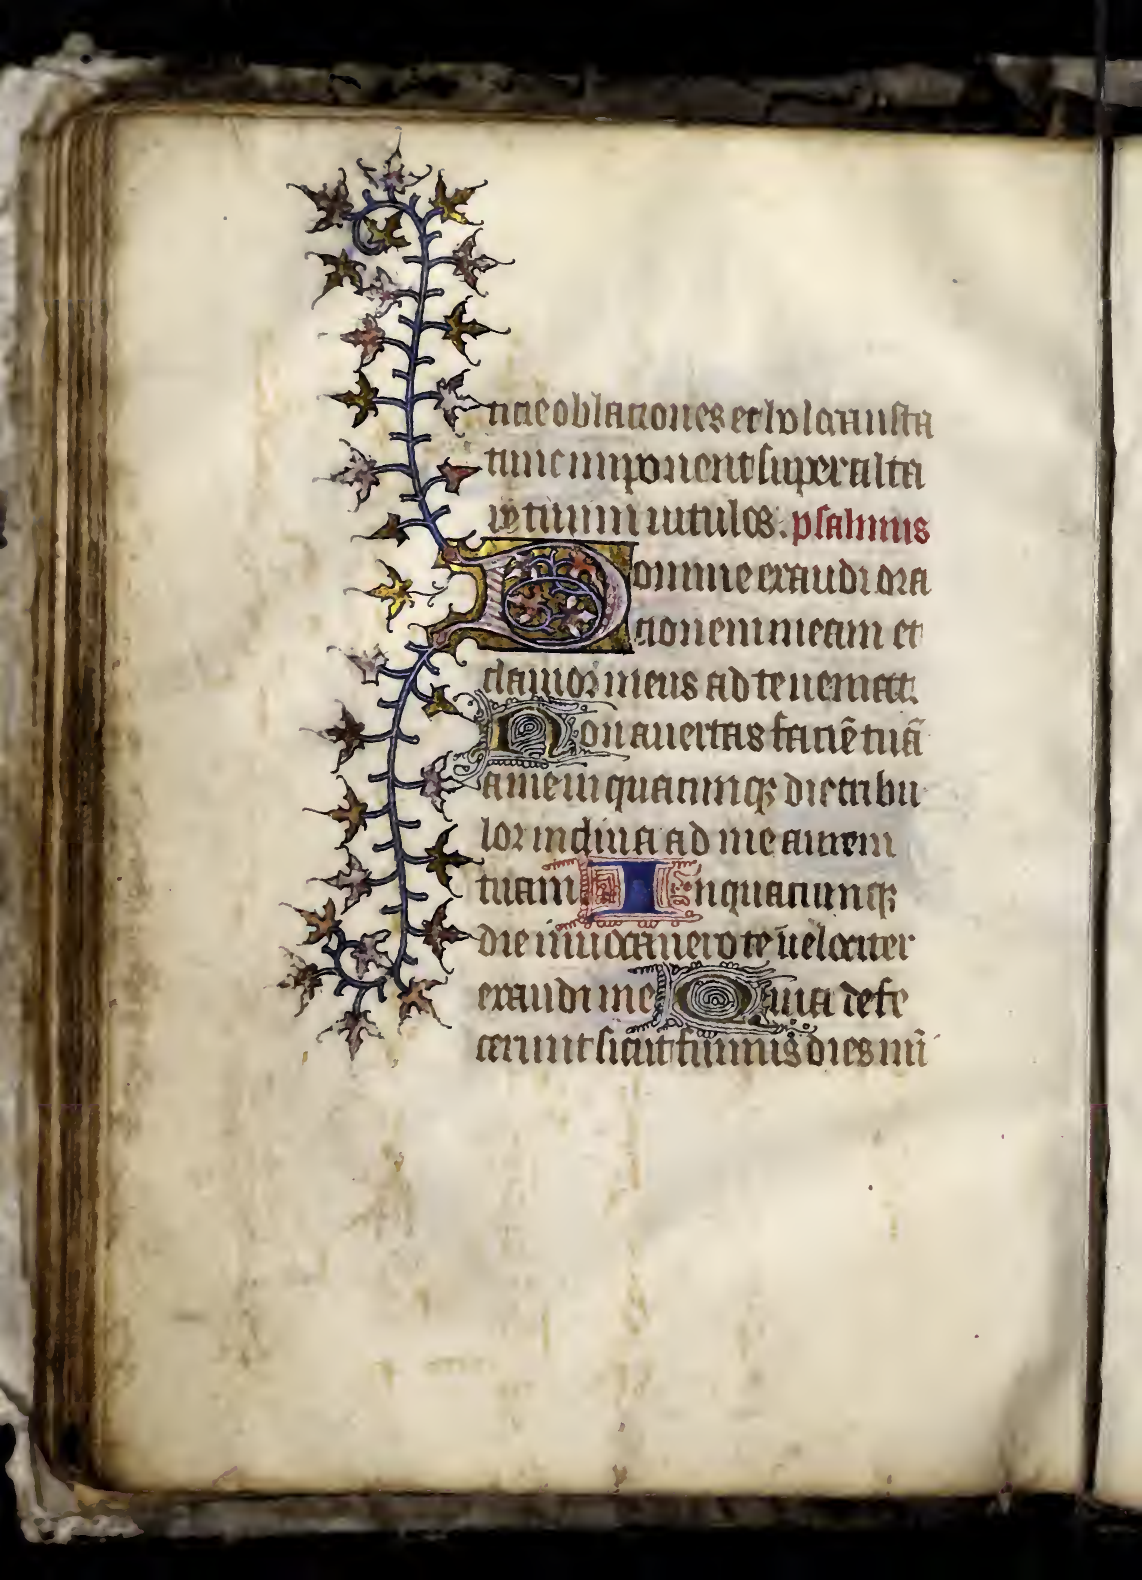 ticie oblationes et holocausta
tunc imponent super alta
re tuum uitulos. psalmus
Domine exaudi ora
tionem meam et
clamor meus ad te ueniat.
Non auertas faciē tuā
a me in quacumqꝫ die tribu
lor inclina ad me aurem
tuam In quacumqꝫ
die inuocauero te uelociter
exaudi me Quia defe
cerunt sicut fumus dies mī